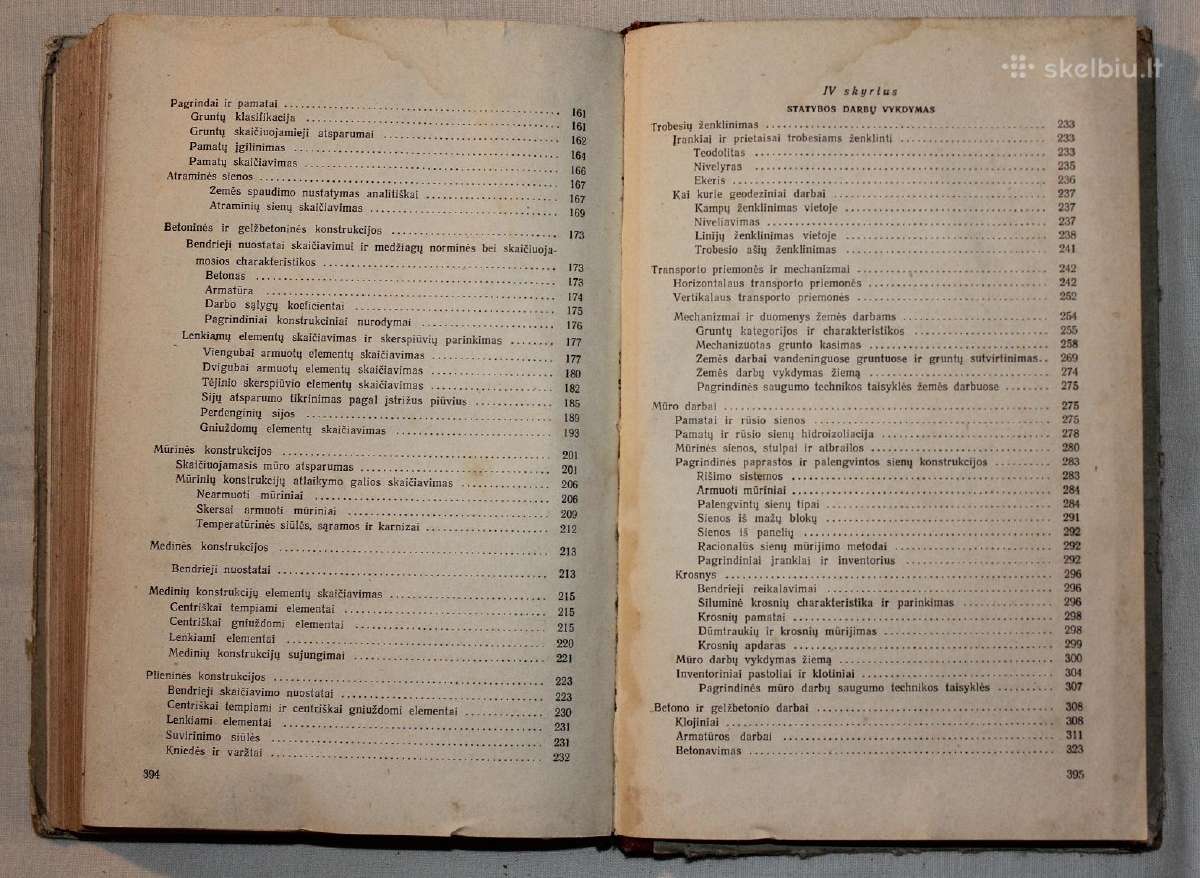 Pagrindai ir pamatai 161
Gruntų klasifikacija 161
Gruntų skaičiuojamieji atsparumai 162
Pamatų įgilinimas 164
Pamatų skaičiavimas 166
Atraminės sienos 167
Žemės spaudimo nustatymas analitiškai 167
Atraminių sienų skaičiavimas 169
Betoninės ir gelžbetoninės konstrukcijos 173
Bendrieji nuostatai skaičiavimui ir medžiagų norminės bei skaičiuoja-
mosios charakteristikos 173
Betonas 173
Armatūra 174
Darbo sąlygų koeficientai 175
Pagrindiniai konstrukciniai nurodymai 176
Lenkiamų elementų skaičiavimas ir skerspiūvių parinkimas 177
Viengubai armuotų elementų skaičiavimas 177
Dvigubai armuotų elementų skaičiavimas 180
Tėjinio skerspiūvio elementų skaičiavimas 182
Sijų atsparumo tikrinimas pagal įstrižus piūvius 185
Perdenginių sijos 189
Gniuždomų elementų skaičiavimas 193
Mūrinės konstrukcijos 201
Skaičiuojamasis mūro atsparumas 201
Mūrinių konstrukcijų atlaikymo galios skaičiavimas 206
Nearmuoti mūriniai 206
Skersai armuoti mūriniai 209
Temperatūrinės siūlės, sąramos ir karnizai 212
Medinės konstrukcijos 213
Bendrieji nuostatai 213
Medinių konstrukcijų elementų skaičiavimas 215
Centriškai tempiami elementai 215
Centriškai gniuždomi elementai 215
Lenkiami elementai 220
Medinių konstrukcijų sujungimai 221
Plieninės konstrukcijos 223
Bendrieji skaičiavimo nuostatai 223
Centriškai tempiami ir centriškai gniuždomi elementai 230
Lenkiami elementai 231
Suvirinimo siūlės 231
Kniedės ir varžtai 232
394
skelbiu.lt
IV skyrius
STATYBOS DARBŲ VYKDYMAS
Trobesių ženklinimas 233
Įrankiai ir prietaisai trobesiams ženklinti 233
Teodolitas 233
Nivelyras 235
Ekeris 236
Kai kurie geodeziniai darbai 237
Kampų ženklinimas vietoje 237
Niveliavimas 237
Linijų ženklinimas vietoje 238
Trobesio ašių ženklinimas 241
Transporto priemonės ir mechanizmai 242
Horizontalaus transporto priemonės 242
Vertikalaus transporto priemonės 252
Mechanizmai ir duomenys žemės darbams 254
Gruntų kategorijos ir charakteristikos 255
Mechanizuotas grunto kasimas 258
Žemės darbai vandeninguose gruntuose ir gruntų sutvirtinimas 269
Žemės darbų vykdymas žiemą 274
Pagrindinės saugumo technikos taisyklės žemės darbuose 275
Mūro darbai 275
Pamatai ir rūsio sienos 275
Pamatų ir rūsio sienų hidroizoliacija 278
Mūrinės sienos, stulpai ir atbrailos 280
Pagrindinės paprastos ir palengvintos sienų konstrukcijos 283
Rišimo sistemos 283
Armuoti mūriniai 284
Palengvintų sienų tipai 284
Sienos iš mažų blokų 291
Sienos iš panelių 292
Racionalūs sienų mūrijimo metodai 292
Pagrindiniai įrankiai ir inventorius 292
Krosnys 296
Bendrieji reikalavimai 296
Šiluminė krosnių charakteristika ir parinkimas 296
Krosnių pamatai 298
Dūmtraukių ir krosnių mūrijimas 298
Krosnių apdaras 299
Mūro darbų vykdymas žiemą 300
Inventoriniai pastoliai ir klotiniai 304
Pagrindinės mūro darbų saugumo technikos taisyklės 307
Betono ir gelžbetonio darbai 308
Klojiniai 308
Armatūros darbai 311
Betonavimas 323
395